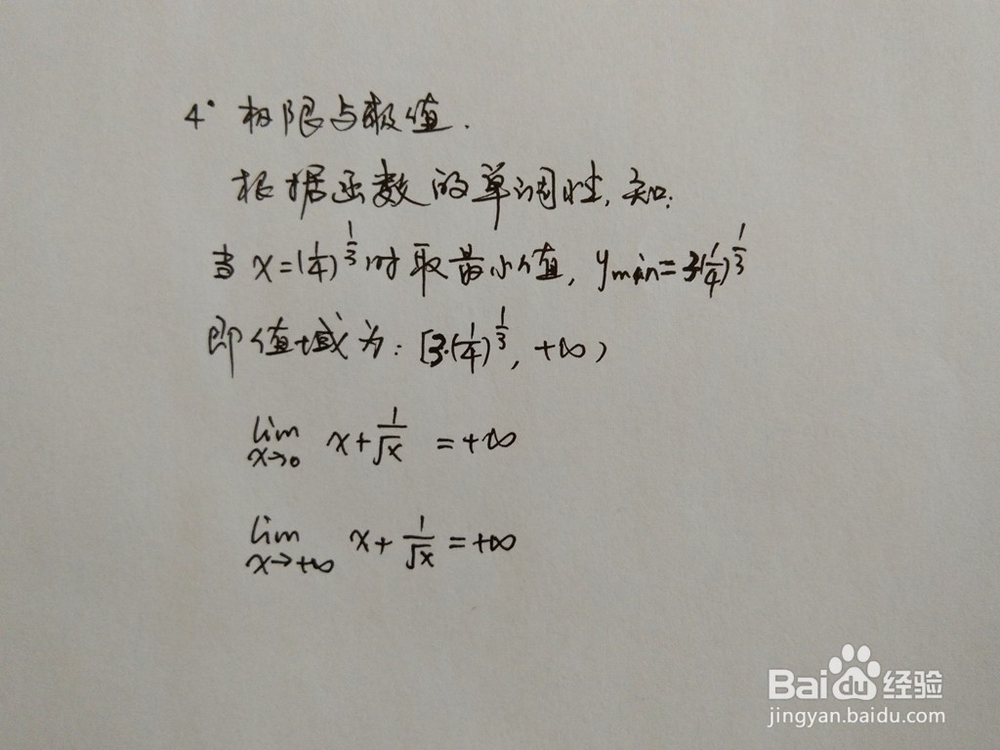 4° 极限与极值.
根据函数的单调性,知:
当 x=(1/4)^(1/3) 时取最小值, ymin=3·(1/4)^(1/3)
即值域为: [3·(1/4)^(1/3), +∞)
lim x→0 x+1/√x =+∞
lim x→+∞ x+1/√x =+∞
Baidu经验
jingyan.baidu.com